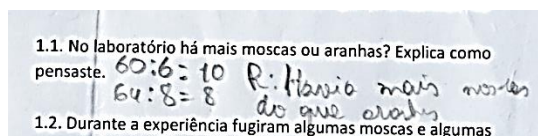 1.1. No laboratório há mais moscas ou aranhas? Explica como
pensaste. 60:6=10 R: Havia mais moscas
64:8=8 do que aranhas
1.2. Durante a experiência fugiram algumas moscas e algumas